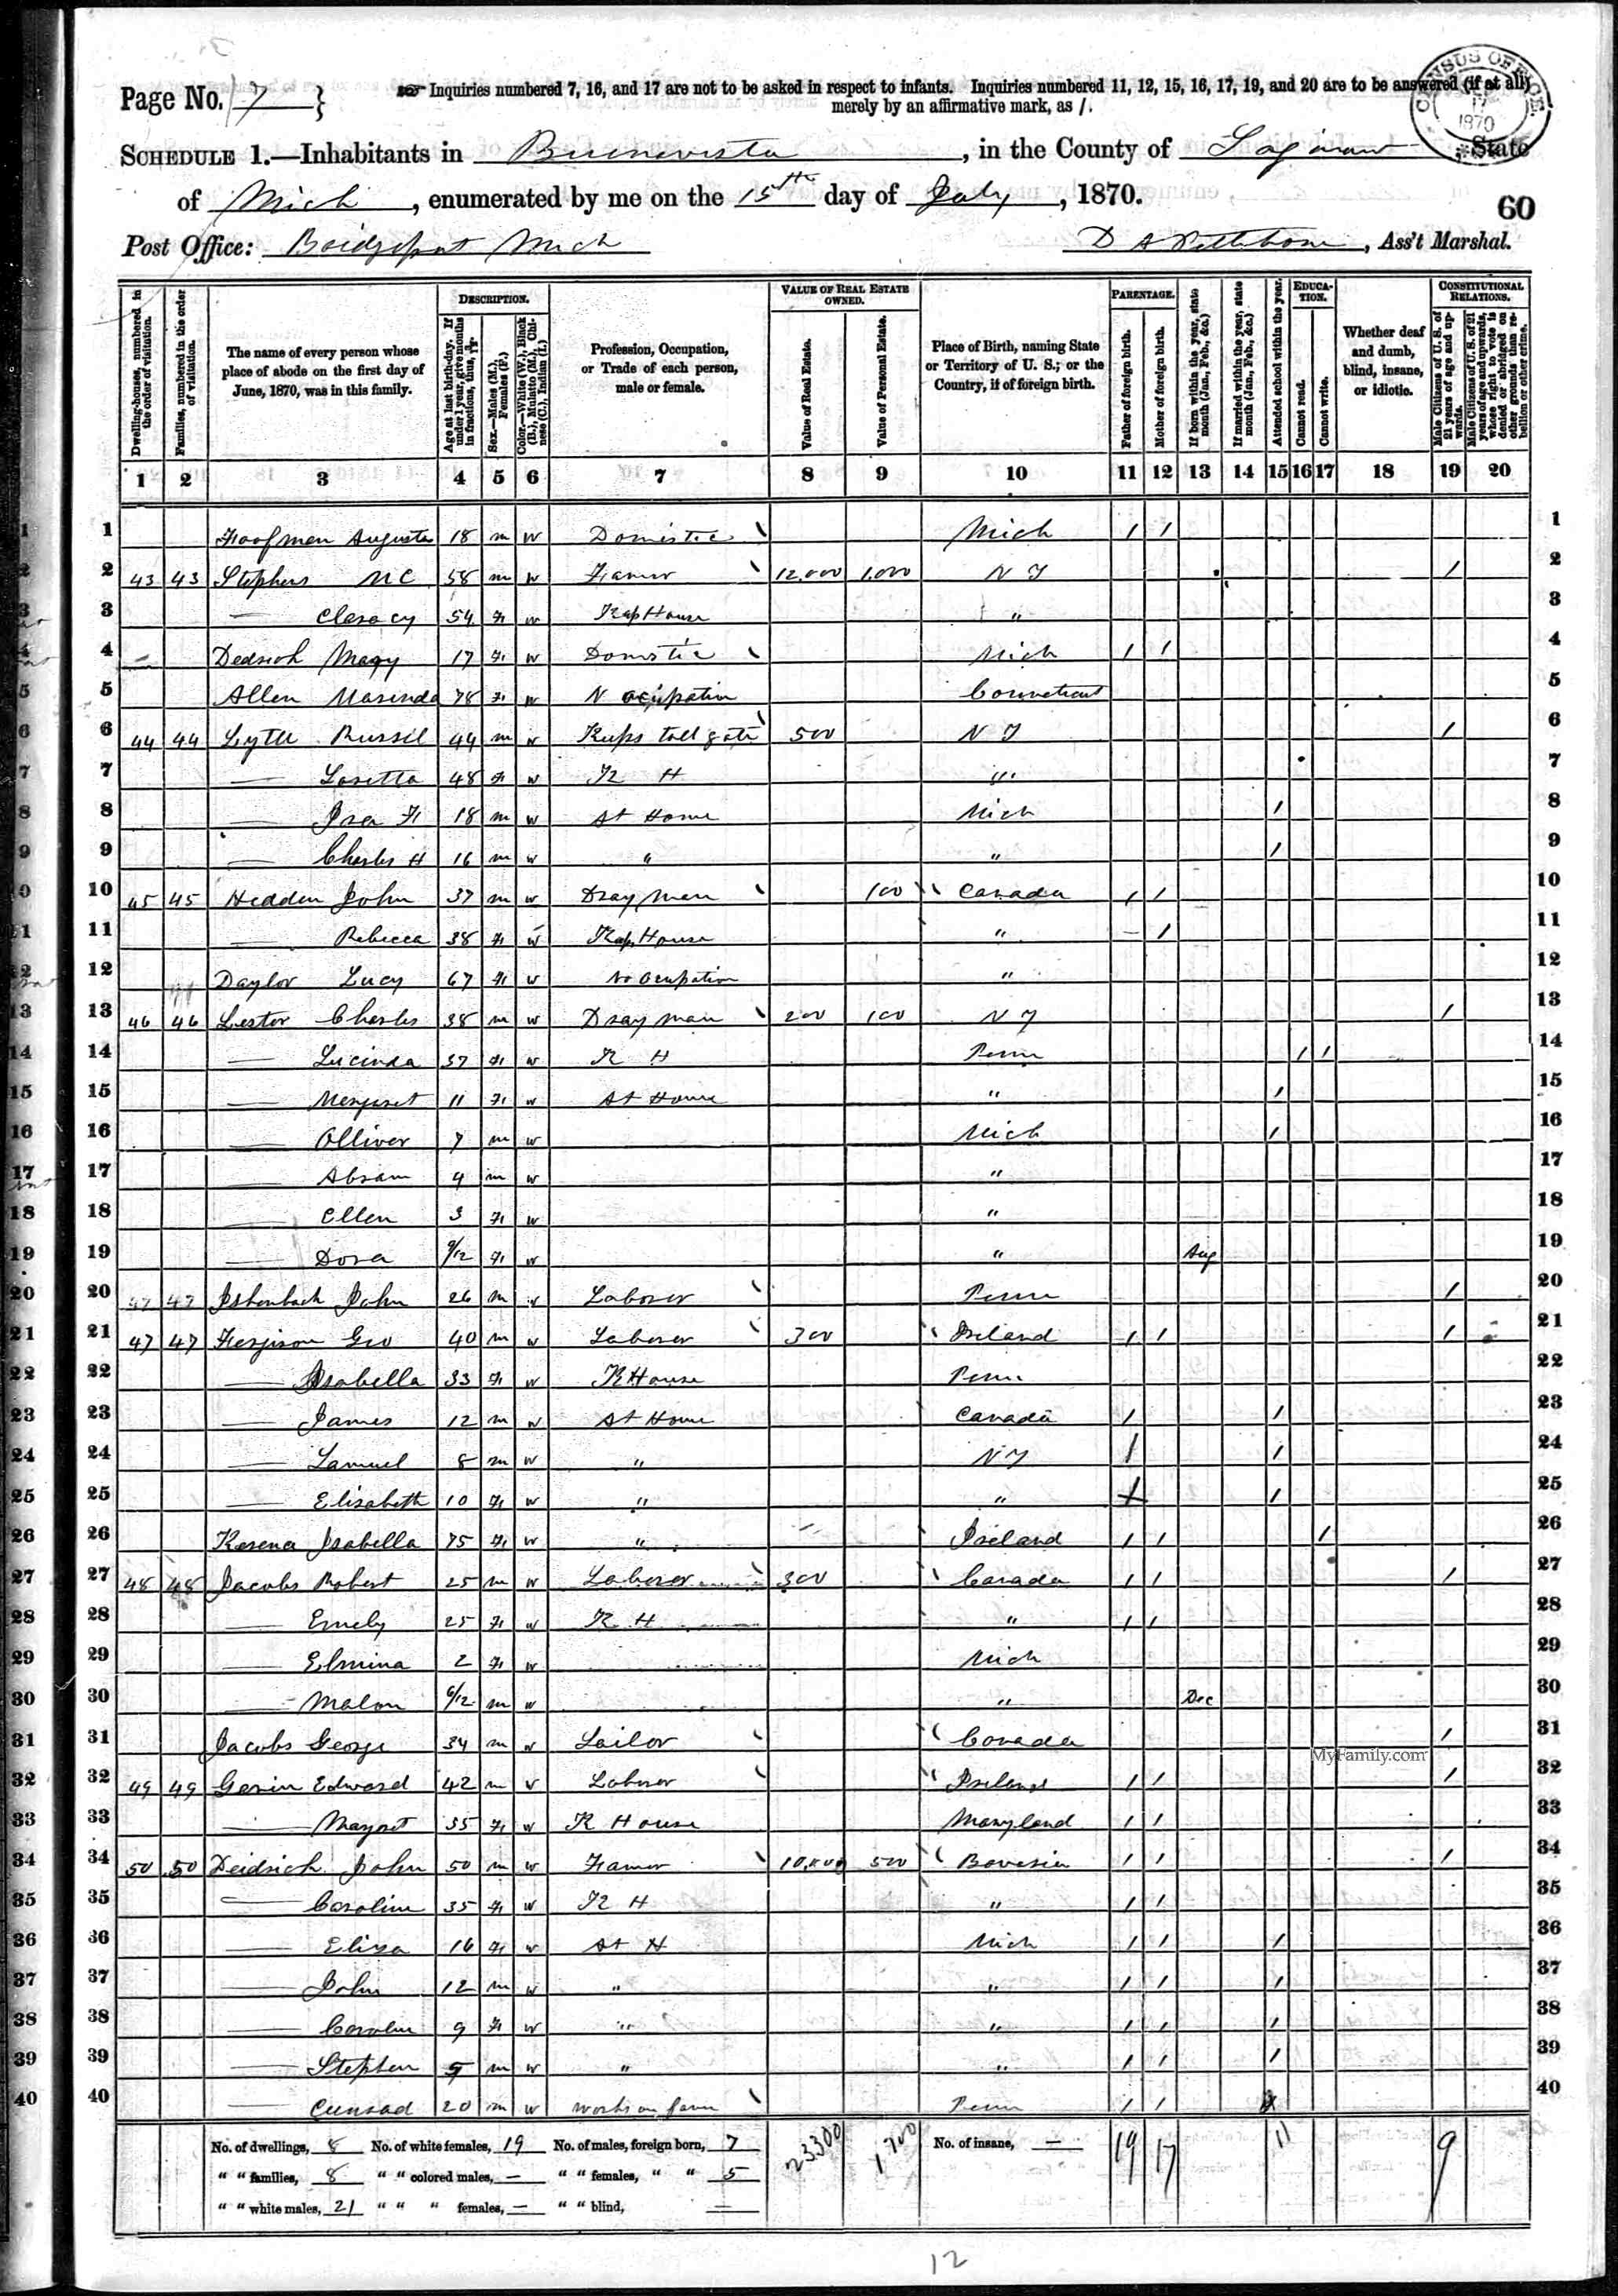 Page No. 7 } Inquiries numbered 7, 16, and 17 are not to be asked in respect to infants. Inquiries numbered 11, 12, 15, 16, 17, 19, and 20 are to be answered (if at all)
merely by an affirmative mark, as /.
CENSUS OFFICE
17
1870
SCHEDULE 1.—Inhabitants in Buenavista, in the County of Saginaw State
of Mich, enumerated by me on the 15th day of July, 1870.
60
Post Office: Bridgeport Mich
D A Pettibone, Ass't Marshal.
Dwelling-houses, numbered in the order of visitation.
Families, numbered in the order of visitation.
The name of every person whose place of abode on the first day of June, 1870, was in this family.
DESCRIPTION.
Age at last birth-day. If under 1 year, give months in fractions, thus, 3/12
Sex.—Males (M.), Females (F.)
Color.—White (W.), Black (B.), Mulatto (M.), Chinese (C.), Indian (I.)
Profession, Occupation, or Trade of each person, male or female.
VALUE OF REAL ESTATE OWNED.
Value of Real Estate.
Value of Personal Estate.
Place of Birth, naming State or Territory of U. S.; or the Country, if of foreign birth.
PARENTAGE.
Father of foreign birth.
Mother of foreign birth.
If born within the year, state month (Jan., Feb., &c.)
If married within the year, state month (Jan., Feb., &c.)
Attended school within the year.
EDUCATION.
Cannot read.
Cannot write.
Whether deaf and dumb, blind, insane, or idiotic.
CONSTITUTIONAL RELATIONS.
Male Citizens of U. S. of 21 years of age and upwards.
Male Citizens of U. S. of 21 years of age and upwards, whose right to vote is denied or abridged on other grounds than rebellion or other crime.
1 2 3 4 5 6 7 8 9 10 11 12 13 14 15 16 17 18 19 20
1 Hoofman Augusta 18 m w Domestic Mich / / 1
2 43 43 Stephens M C 58 m w Farmer 12,000 1,000 N Y / 2
3 — Claracy 54 F w Keep House " 3
4 Dedrich Mary 17 F w Domestic Mich / / 4
5 Allen Marinda 78 F w N ocupation Conneticut 5
6 44 44 Lytle Russil 44 m w Keeps toll gate 500 N Y / 6
7 — Losetta 48 F w K H " 7
8 — Ira F 18 m w At Home Mich / 8
9 — Charles H 16 m w " " / 9
10 45 45 Hedden John 37 m w Dray Man 100 Canada / / 10
11 — Rebecca 38 F w Keep House " - / 11
12 Daylor Lucy 67 F w No Ocupation " 12
13 46 46 Lester Charles 38 m w Dray man 200 100 N Y / 13
14 — Lucinda 37 F w K H Penn / / 14
15 — Margaret 11 F w At Home " / 15
16 — Olliver 7 m w Mich / 16
17 — Abram 4 m w " 17
18 — Ellen 3 F w " 18
19 — Dora 9/12 F w " Aug 19
20 47 47 Ishenbach John 26 m w Laborer Penn / 20
21 47 47 Ferjison Geo 40 m w Laborer 300 Ireland / / / 21
22 — Isabella 33 F w K House Penn 22
23 — James 12 m w At Home Canada / / 23
24 — Samuel 8 m w " N Y / / 24
25 — Elisabeth 10 F w " " / / 25
26 Kerena Isabella 75 F w " Ireland / / / 26
27 48 48 Jacobs Robert 25 m w Laborer 300 Canada / / / 27
28 — Emely 25 F w K H " / / 28
29 — Elmina 2 F w Mich 29
30 — Malon 6/12 m w " Dec 30
31 Jacobs George 34 m w Sailor Canada / 31
MyFamily.com
32 49 49 Gavin Edward 42 m w Laborer Ireland / / / 32
33 — Margret 35 F w K House Maryland / / 33
34 50 50 Deidrich John 50 m w Farmer 10,000 500 Bavaria / / / 34
35 — Caroline 35 F w K H " / / 35
36 — Eliza 16 F w At H Mich / / / 36
37 — John 12 m w " " / / / 37
38 — Carolin 9 F w " " / / / 38
39 — Stephen 5 m w " " / / / 39
40 — Cunrad 20 m w works on farm Penn / / 40
No. of dwellings, 8 No. of white females, 19 No. of males, foreign born, 7 23300 1,700 No. of insane, — 19 17 11 9
" " families, 8 " " colored males, — " " females, " " 5
" " white males, 21 " " " females, — " " blind, —
12